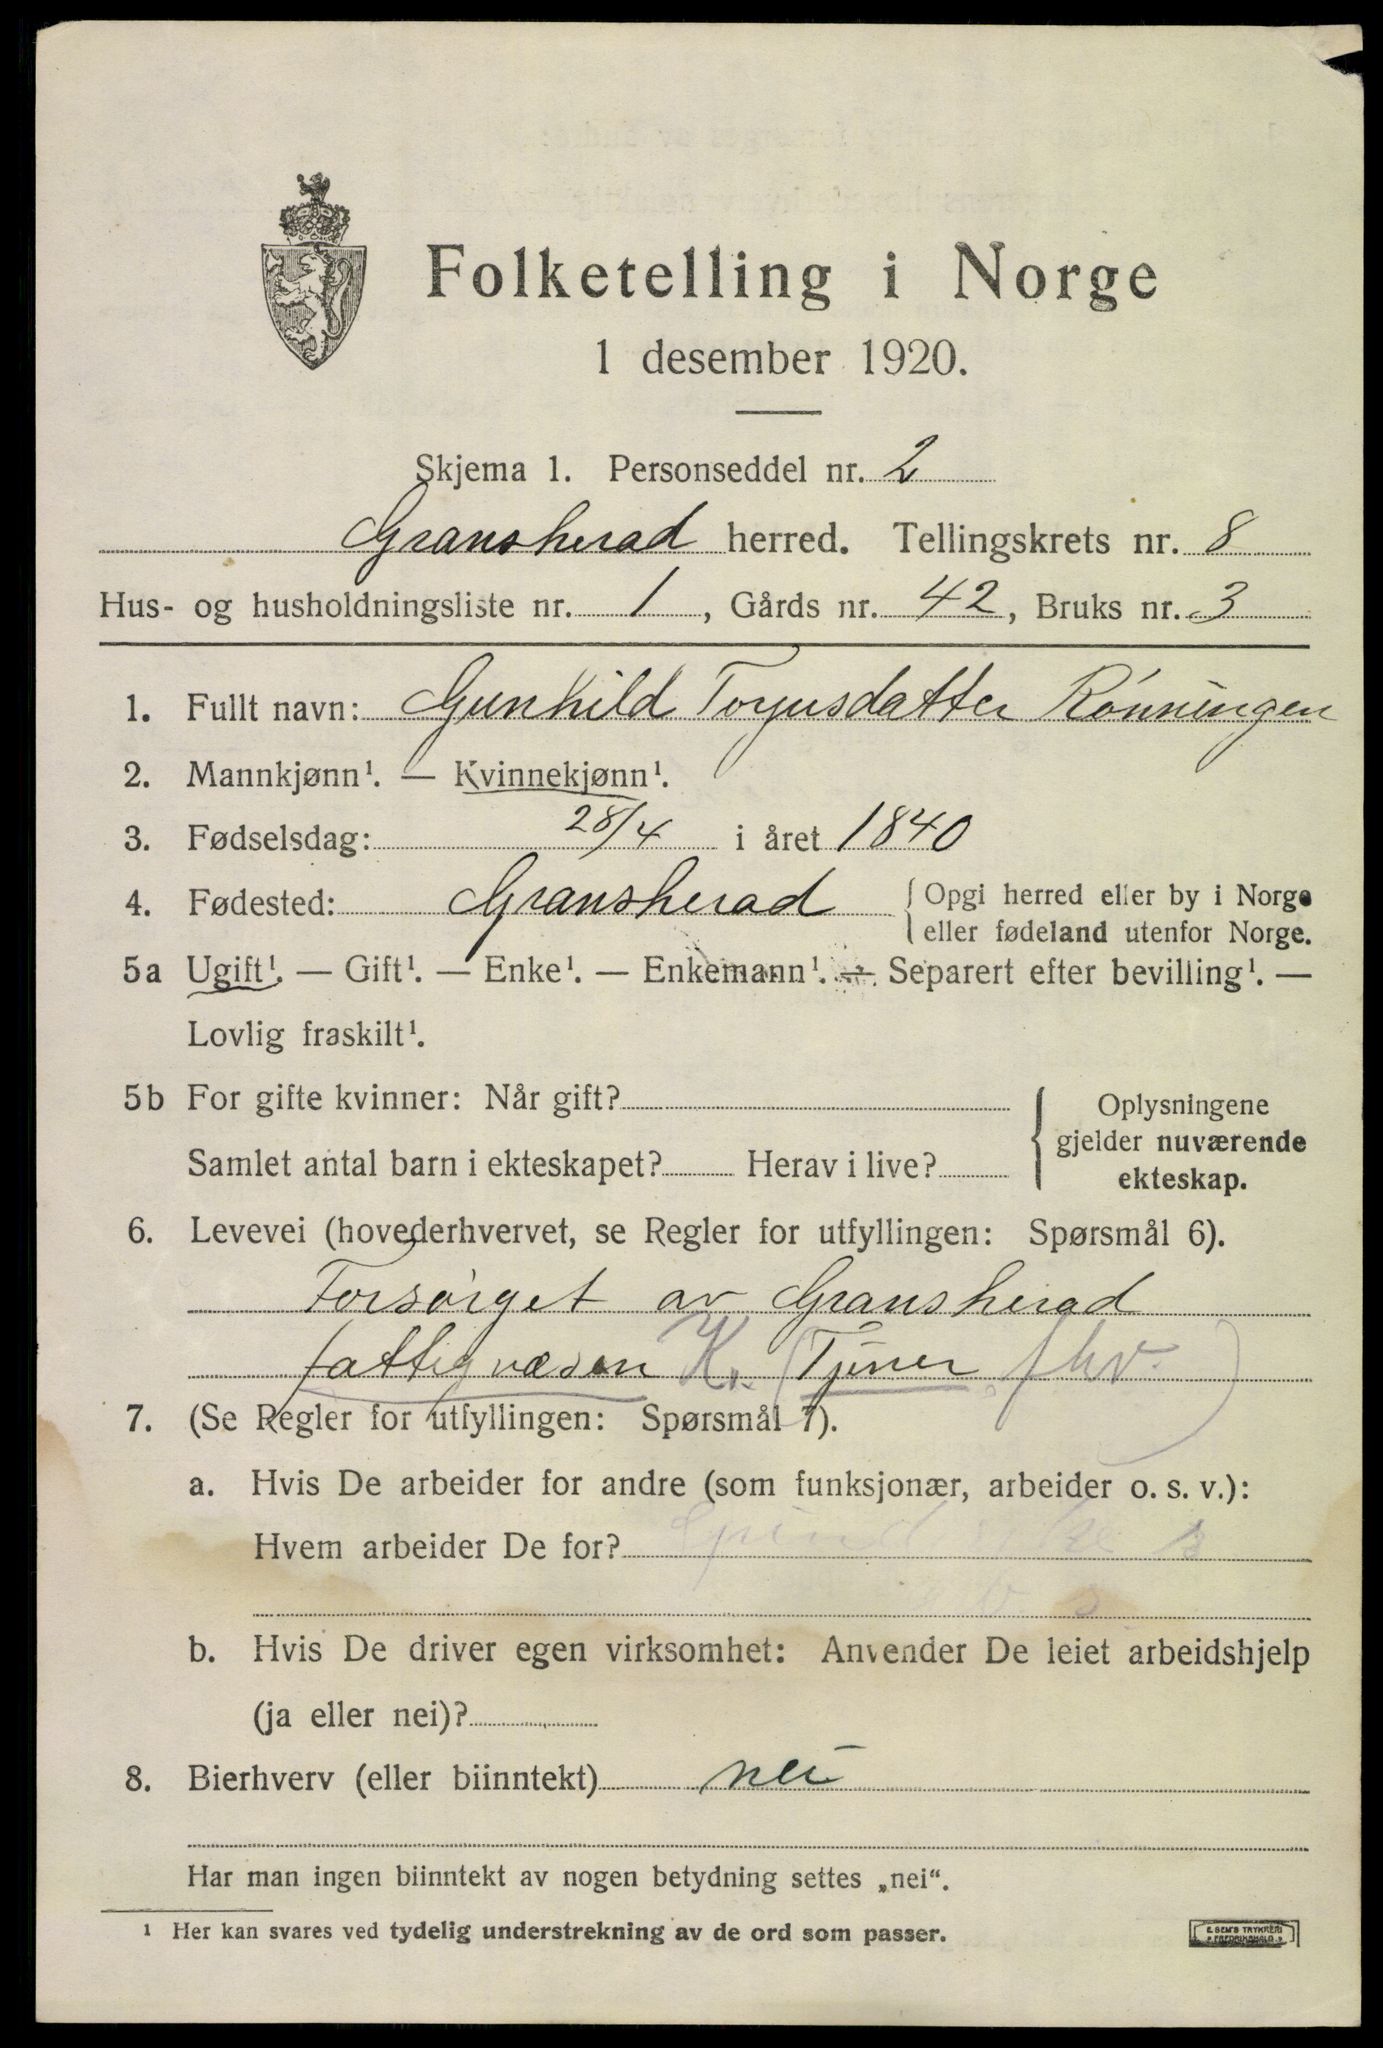 Folketelling i Norge
1 desember 1920.
Skjema 1. Personseddel nr. 2
Gransherad herred. Tellingskrets nr. 8
Hus- og husholdningsliste nr. 1, Gårds nr. 42, Bruks nr. 3
1. Fullt navn: Gunhild Torjusdatter Rönningen
2. Mannkjønn¹. — Kvinnekjønn¹.
3. Fødselsdag: 28/4 i året 1840
4. Fødested: Gransherad { Opgi herred eller by i Norge
eller fødeland utenfor Norge.
5a Ugift¹. — Gift¹. — Enke¹. — Enkemann¹. — Separert efter bevilling¹. —
Lovlig fraskilt¹.
5b For gifte kvinner: Når gift? { Oplysningene
gjelder nuværende
Samlet antal barn i ekteskapet? Herav i live?
ekteskap.
6. Levevei (hovederhvervet, se Regler for utfyllingen: Spørsmål 6).
Forsörget av Gransherad
fattigvæsen K. (Tjener fhv.)
7. (Se Regler for utfyllingen: Spørsmål 7).
a. Hvis De arbeider for andre (som funksjonær, arbeider o. s. v.):
Hvem arbeider De for?
b. Hvis De driver egen virksomhet: Anvender De leiet arbeidshjelp
(ja eller nei)?
8. Bierhverv (eller biinntekt) nei
Har man ingen biinntekt av nogen betydning settes „nei“.
¹ Her kan svares ved tydelig understrekning av de ord som passer.
E. SEM'S TRYKKERI
FREDRIKSHALD